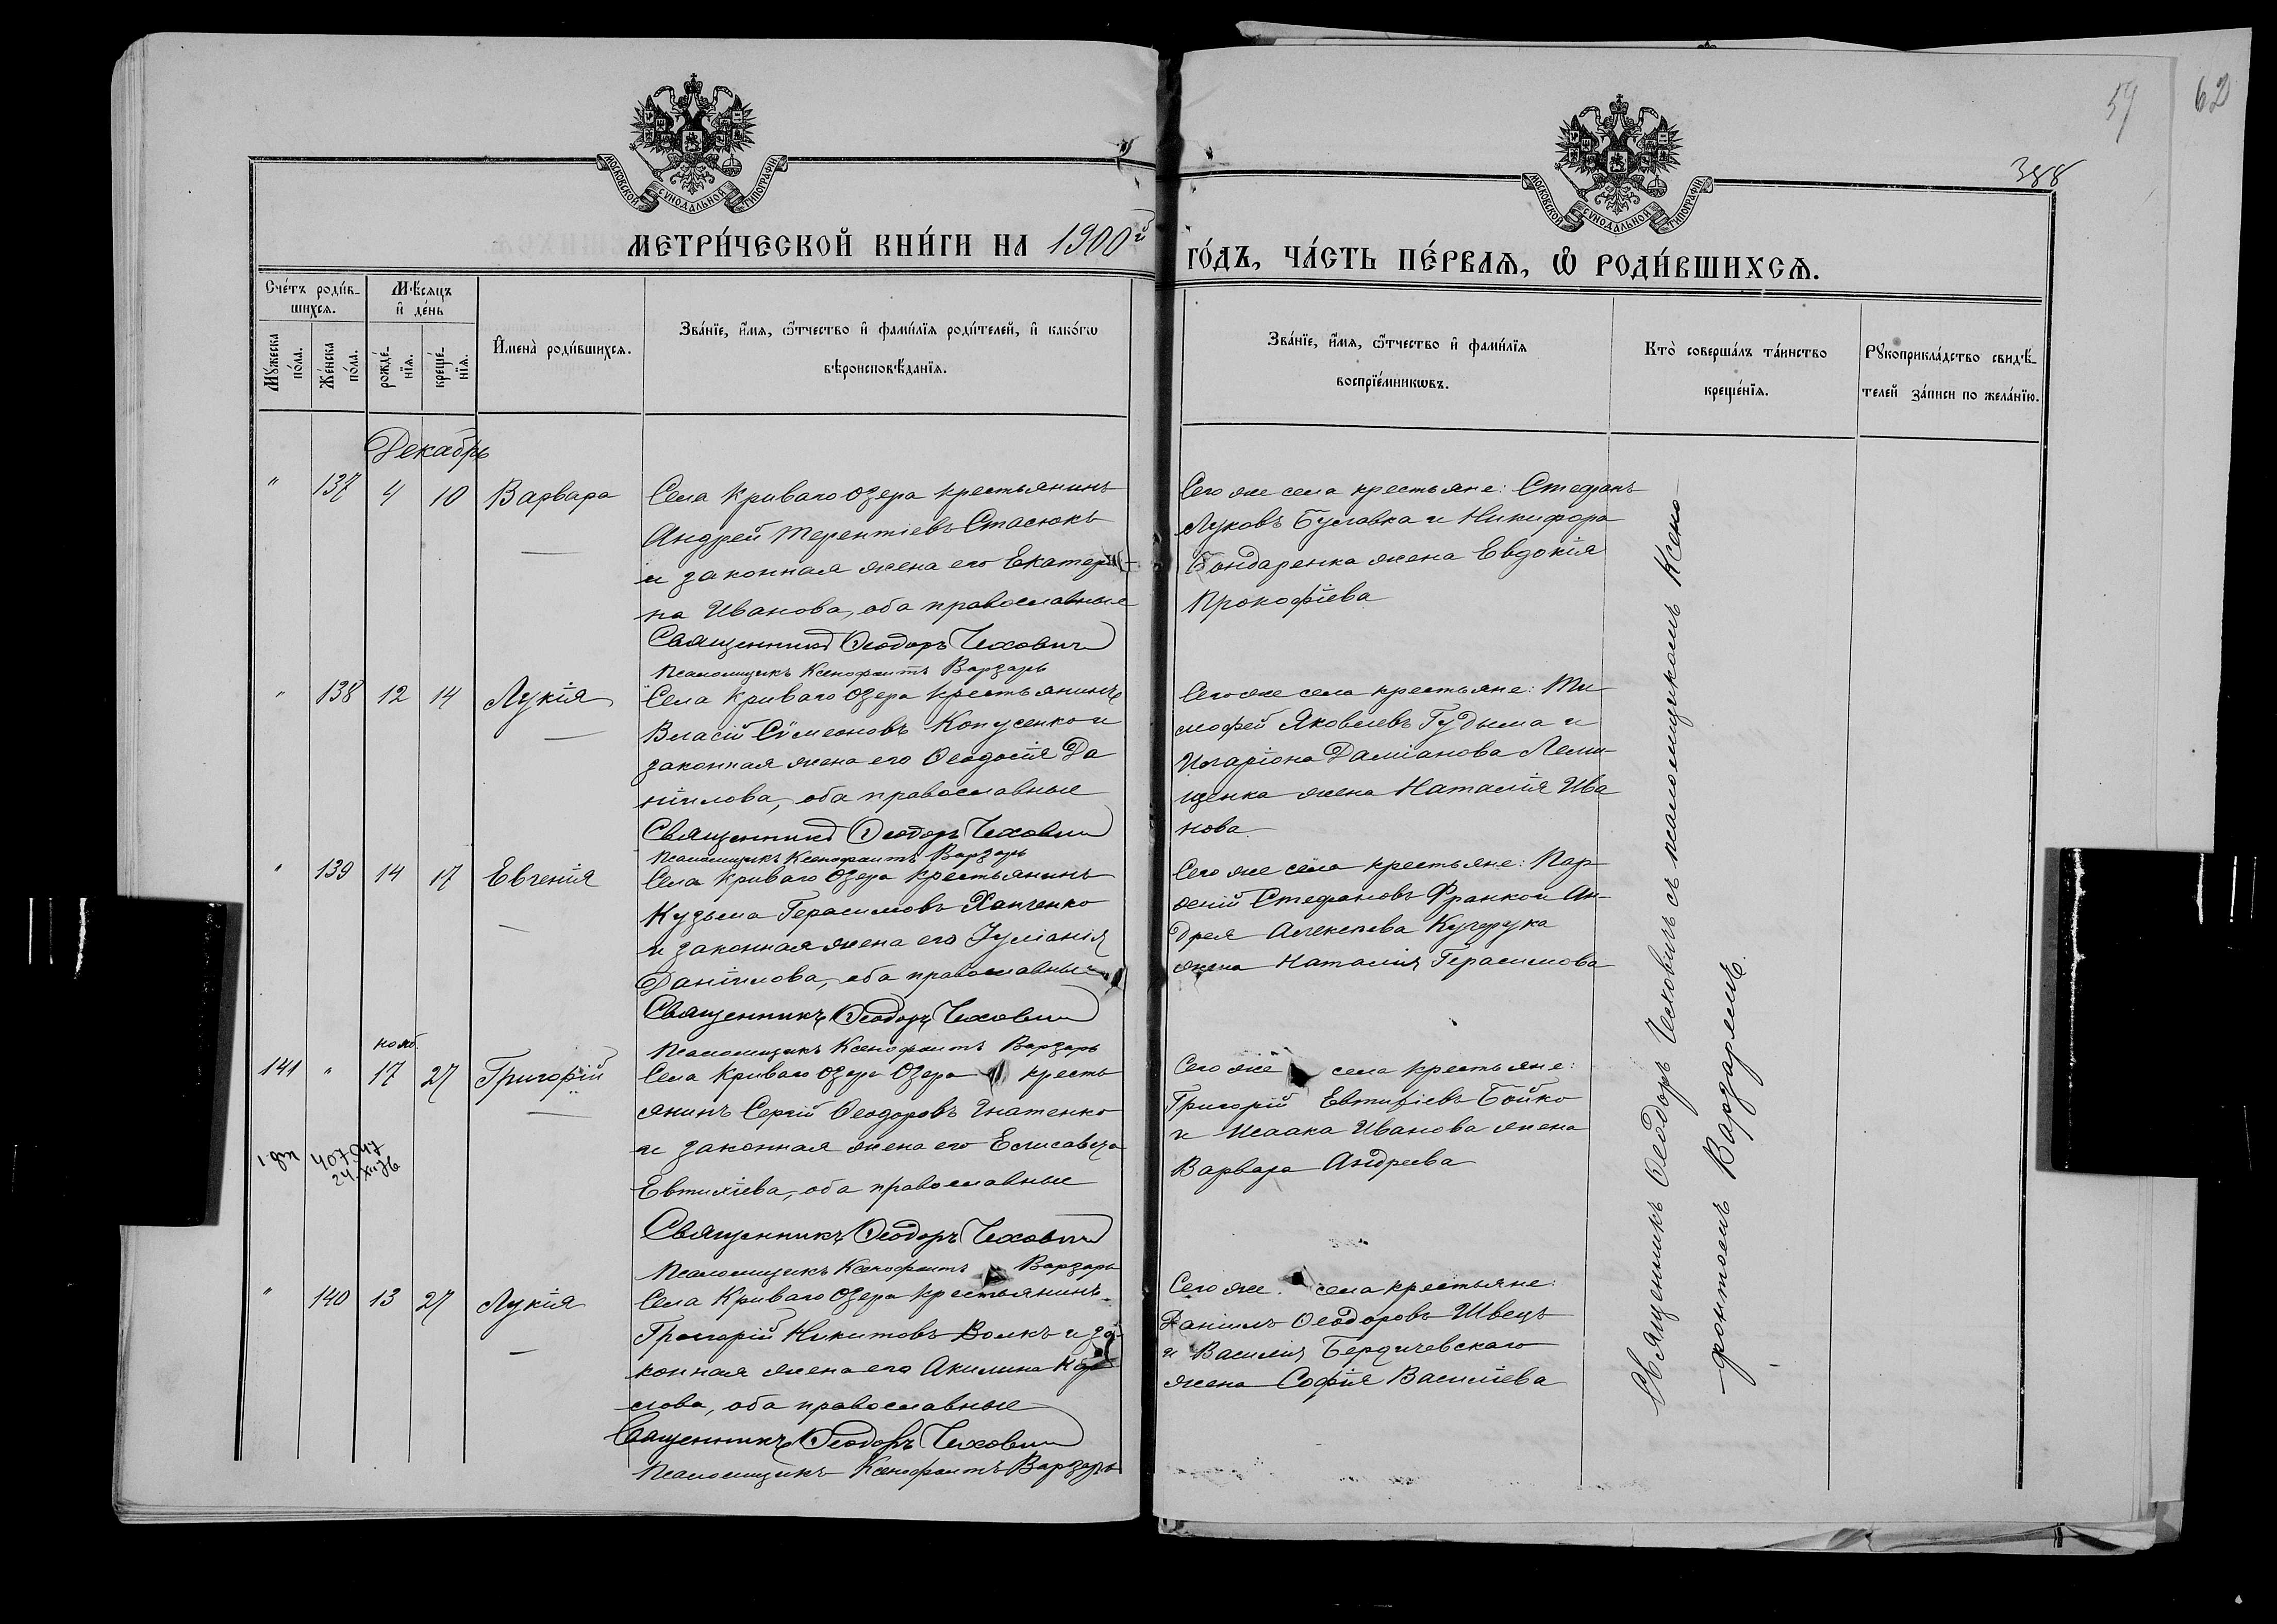 59
62
388
МОСКОВСКОЙ СѴНОДАЛЬНОЙ ТИПОГРАФІИ
МОСКОВСКОЙ СѴНОДАЛЬНОЙ ТИПОГРАФІИ
МЕТРИ́ЧЕСКОЙ КНИ́ГИ НА 1900й
ГО́ДЪ, ЧА́СТЬ ПЕ́РВАѦ, Ѡ҆ РОДИ́ВШИХСѦ.
Сче́тъ роди́в-
шихсѧ.
Мꙋ́жеска по́ла.
Же́нска по́ла.
Мѣ́сѧцъ
и҆ де́нь
рожде́-
нїѧ.
креще́-
нїѧ.
И҆мена̀ роди́вшихсѧ.
Зва́нїе, и҆́мѧ, ѻ҆́тчество и҆ фами́лїѧ роди́телей, и҆ како́гѡ
вѣроисповѣ́данїѧ.
Зва́нїе, и҆́мѧ, ѻ҆́тчество и҆ фами́лїѧ
воспрїе́мникѡвъ.
Кто̀ соверша́лъ та́инство
креще́нїѧ.
Рꙋкоприкла́дство свидѣ́-
телей за́писи по жела́нїю.
Декабрь
" 137 4 10 Варвара
Села Криваго Озера крестьянинъ
Андрей Терентіевъ Стасюкъ
и законная жена его Екатери-
на Иванова, оба православные
Священникъ Ѳеодоръ Чехович
Псаломщикъ Ксенофонтъ Варзарь
Сего же села крестьяне: Стефанъ
Луковъ Буславка и Никифора
Бондаренка жена Евдокія
Прокофіева
" 138 12 14 Лукія
Села Криваго Озера крестьянинъ
Власій Сѵмеоновъ Копусенко и
законная жена его Ѳеодосія Да
ніилова, оба православные
Священникъ Ѳеодоръ Чехович
Псаломщикъ Ксенофонтъ Варзарь
Сего же села крестьяне: Ти
мофей Яковлевъ Гудыма и
Иларіона Даміанова Леми-
щенка жена Наталія Ива
нова
" 139 14 17 Евгенія
Села Криваго Озера крестьянинъ
Кузьма Герасимовъ Ханченко
и законная жена его Іуліанія
Даніилова, оба православные
Священникъ Ѳеодоръ Чехович
Псаломщикъ Ксенофонтъ Варзарь
Сего же села крестьяне: Пар
ѳеній Стефановъ Франко и Ан-
дрея Алексѣева Кучерука
жена Наталія Герасимова
нояб.
141 " 17 27 Григорій
Села Криваго Озера Озера кресть
янинъ Сергій Ѳеодоровъ Гнатенко
и законная жена его Елисавета
Евтихіева, оба православные
Священникъ Ѳеодоръ Чехович
Псаломщикъ Ксенофонтъ Варзарь
Сего же села крестьяне:
Григорій Евтихіевъ Бойко
и Исаака Иванова жена
Варвара Андреева
" 140 13 27 Лукія
Села Криваго Озера крестьянинъ
Григорій Никитовъ Волкъ и за
конная жена его Акилина Кар
пова, оба православные
Священникъ Ѳеодоръ Чехович
Псаломщикъ Ксенофонтъ Варзарь
Сего же села крестьяне:
Даніилъ Ѳеодоровъ Швецъ
и Василія Бердичевскаго
жена Софія Василіева
Священникъ Ѳеодоръ Чеховичъ съ псаломщикомъ Ксено
фонтомъ Варзаремъ.